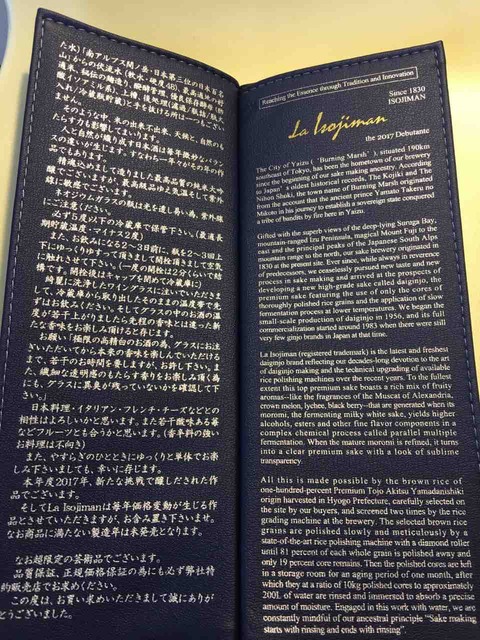 た水)「南アルプス間ノ岳・日本第三位の日本百名
山」からの伏流水(軟水・硬度48)、最高級の村
米、秘伝の麹造り、超少量酵母、
酸イソアミル系)、上槽、後処理(濾過/瓶詰/瓶火
入れ/冷蔵瓶貯蔵)と手を抜ける所は一つもござい
ません。
そのような中、米の出来不出来、天候と、自然のも
たらす力も影響してまいります。
人と自然が織り成す日本酒は毎年微妙なバラン
スの違いが生じます。すなわち一年々がその年の作
品であります。
精魂込めまして造りました最高品質の純米大吟
醸でございます。最高級品ゆえ気温そして紫外
線に敏感でございます。
ジェロボウムグラスの瓶は光を通し易い為、紫外線
にご注意ください。
必ず5度以下の冷蔵庫で保管下さい。(最適長
期貯蔵温度・マイナス2度)
また、お飲みになる2~3日前に、瓶を2~3回上
下にゆっくりゆすって頂きまして開栓頂きまして空気
に触れさせて下さい。(一度の開栓は2分くらいで結
構です。開栓後はキャップを閉めて冷蔵庫に)
綺麗に洗浄したワイングラスにお注ぎいただきま
して、冷蔵庫から取り出したそのままの温度帯で先
ずはお飲みください。そしてグラスの中のお酒の温
度が若干上がりましたら先程の香味とは違った新
たな香味をお楽しみ頂けると存じます。
お願い「極限の高精白のお酒の為、グラスにお注
ぎいただいてから本来の香味を楽しんでいただける
まで、若干のお時間を要しますが、お許し下さい。ま
た、繊細な透明感のもたらす香りをお楽しみ頂く為
にも、グラスに異臭が残っていないかを確認して下
さい。」
日本料理・イタリアン・フレンチ・チーズなどとの
相性はよろしいかと思います。また若干酸味ある苺
などフルーツとも合うかと思います。(香辛料の強い
お料理は不向き)
また、やすらぎのひとときにゆっくりと単体でお楽
しみ下さいましても、幸いに存じます。
本年度2017年、新たな挑戦で醸しだされた作
品でございます。
そしてLa Isojimanは毎年価格変動が生じる作
品とさせていただきますが、お含み置き下さいませ。
なお商品に満たない製造年は未発売となります。
なお超限定の芸術品でございます。
品質保証、正規価格保証の為にも必ず弊社特
約販売店でお求めください。
この度は、お買い求めいただきまして誠にありが
とうございました。
Reaching the Essence through Tradition and Innovation
Since 1830
ISOJIMAN
La Isojiman
the 2017 Debutante
The City of Yaizu ("Burning Marsh"), situated 190km
southeast of Tokyo, has been the hometown of our brewery
since the beginning of our sake making ancestry. According
to Japan's oldest historical records, The Kojiki and The
Nihon Shoki, the town name of Burning Marsh originated
from the account that the ancient prince Yamato Takeru no
Mikoto in his journey to establish a sovereign state conquered
a tribe of bandits by fire here in Yaizu.
Gifted with the superb views of the deep-lying Suruga Bay,
mountain-ranged Izu Peninsula, magical Mount Fuji to the
east and the principal peaks of the Japanese South Alps
mountain range to the north, our sake brewery originated in
1830 at the present site. Ever since, while always in reverence
of predecessors, we ceaselessly pursued new taste and new
process in sake making and arrived at the prospects of
developing a new high-grade sake called daiginjo, the
premium sake featuring the use of only the cores of
thoroughly polished rice grains and the application of slow
fermentation process at lower temperatures. We began the
small-scale production of daiginjo in 1956, and its full
commercialization started around 1983 when there were still
very few ginjo brands in Japan at that time.
La Isojiman (registered trademark) is the latest and freshest
daiginjo brand reflecting our decades-long devotion to the art
of daiginjo making and the technical upgrading of available
rice polishing machines over the recent years. To the fullest
extent this top premium sake boasts a rich mix of fruity
aromas--like the fragrances of the Muscat of Alexandria,
crown melon, lychee, black berry--that are generated when its
moromi, the fermenting milky white sake, yields higher
alcohols, esters and other fine flavor components in a
complex chemical process called parallel multiple
fermentation. When the mature moromi is refined, it turns
into a clear premium sake with a look of sublime
transparency.
All this is made possible by the brown rice of
one-hundred-percent Premium Tojo Akitsu Yamadanishiki
origin harvested in Hyogo Prefecture, carefully selected on
the site by our buyers, and screened two times by the rice
grading machine at the brewery. The selected brown rice
grains are polished slowly and meticulously by a
state-of-the-art rice polishing machine with a diamond roller
until 81 percent of each whole grain is polished away and
only 19 percent core remains. Then the polished cores are left
in a storage room for an aging period of one month, after
which they at a ratio of 10kg polished cores to approximately
200L of water are rinsed and immersed to absorb a precise
amount of moisture. Engaged in this work with water, we are
constantly mindful of our ancestral principle "Sake making
starts with rinsing and ends with rinsing".